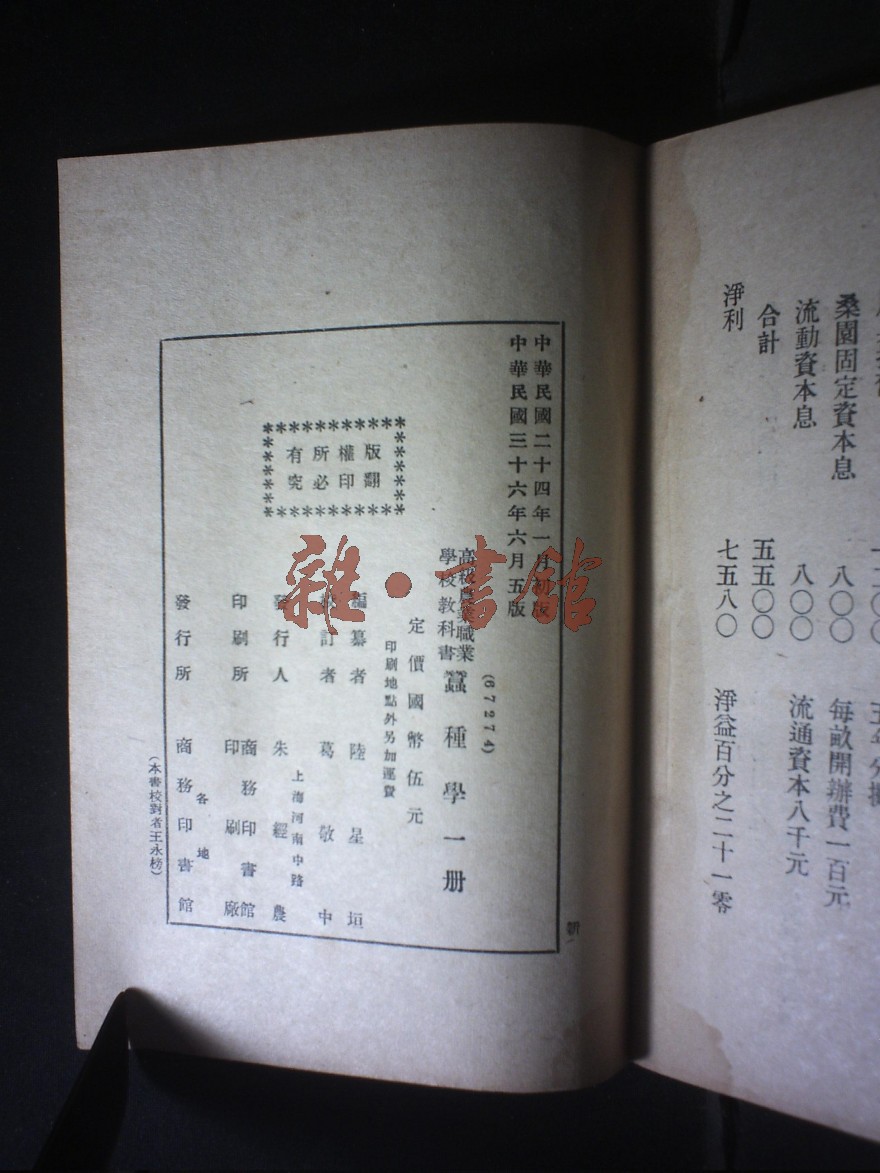 桑園固定資本息 八〇〇 每畝開辦費一百元
流動資本息 八〇〇 流通資本八千元
合計 五五〇〇
淨利 七五八〇 淨益百分之二十一零
中華民國二十四年一月初版
中華民國三十六年六月五版
(67274)
高級農業職業
學校教科書
蠶種學一册
定價國幣伍元
印刷地點外另加運費
版權所有
翻印必究
編纂者 陸星垣
校訂者 葛敬中
上海河南中路
發行人 朱經農
印刷所 商務印書館
印刷廠
各地
發行所 商務印書館
(本書校對者王永榜)
雜·書館